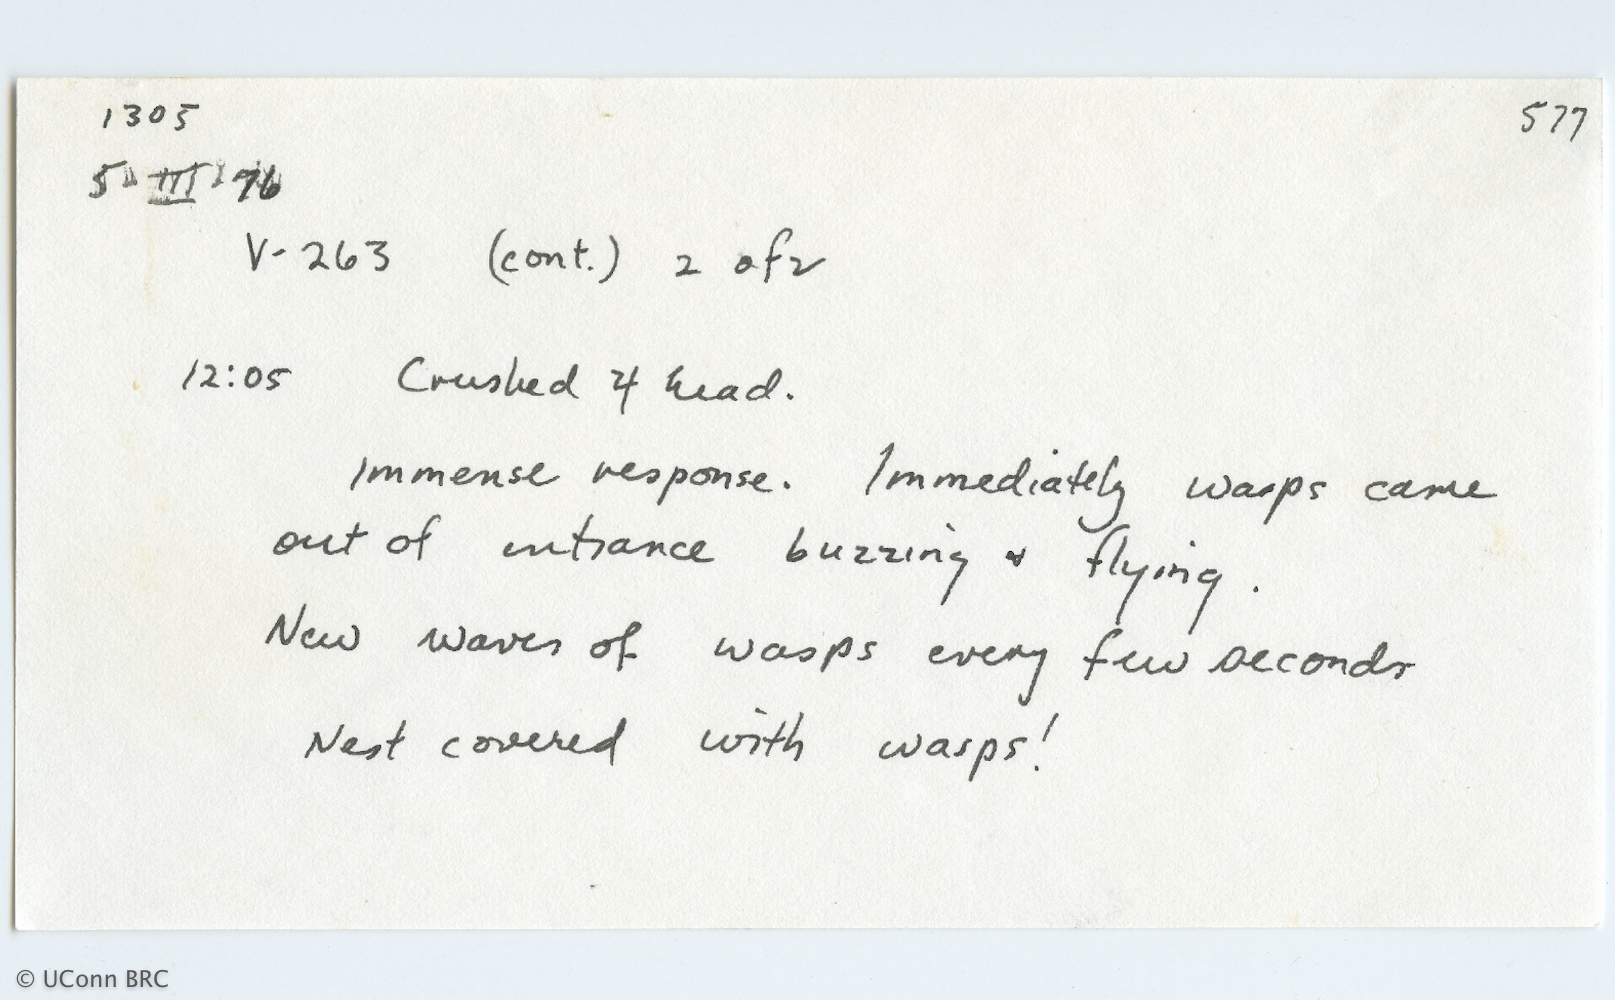 1305
577
5 III 76
V-263 (cont.) 2 of 2
12:05 Crushed 4 head.
Immense response. Immediately wasps came
out of entrance buzzing & flying.
New waves of wasps every few seconds
Nest covered with wasps!
© UConn BRC